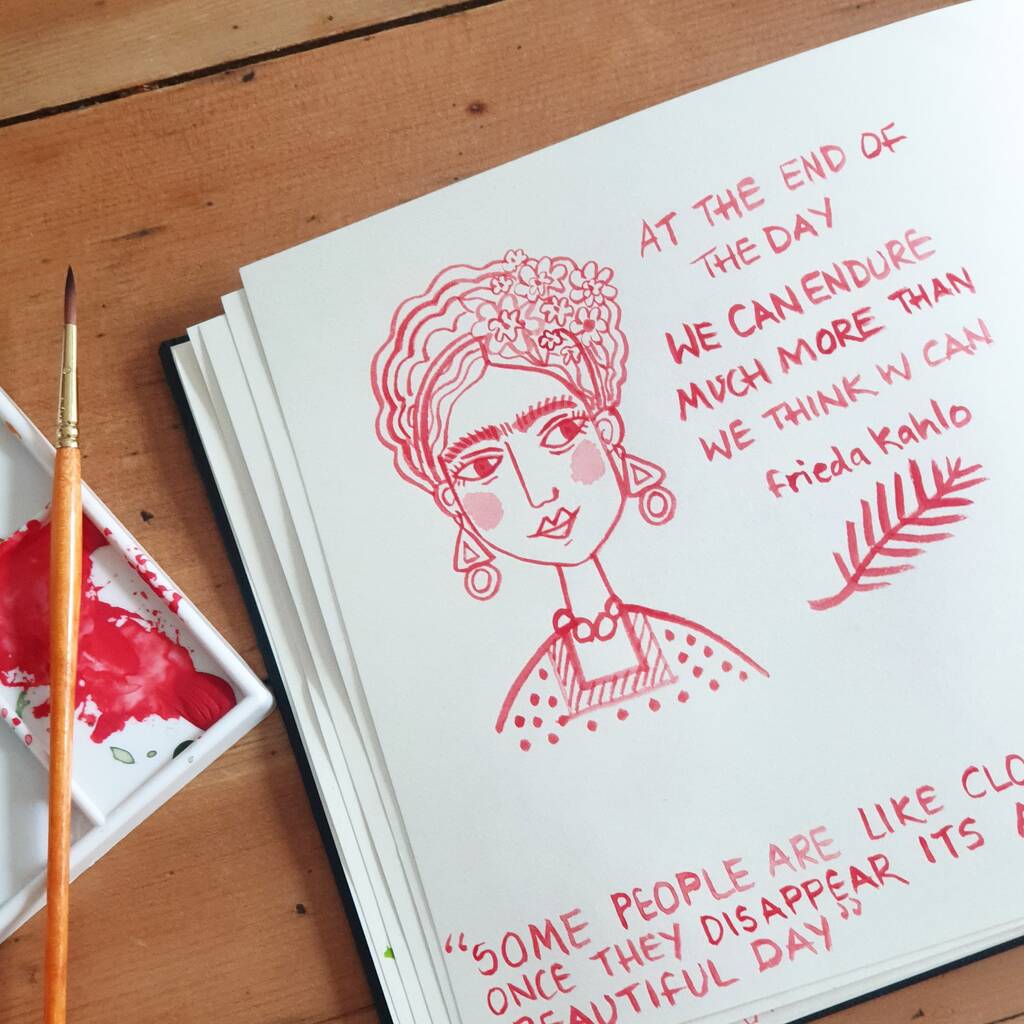 AT THE END OF
THE DAY
WE CAN ENDURE
MUCH MORE THAN
WE THINK W CAN
frieda Kahlo
"SOME PEOPLE ARE LIKE CLO
ONCE THEY DISAPPEAR ITS
BEAUTIFUL DAY"